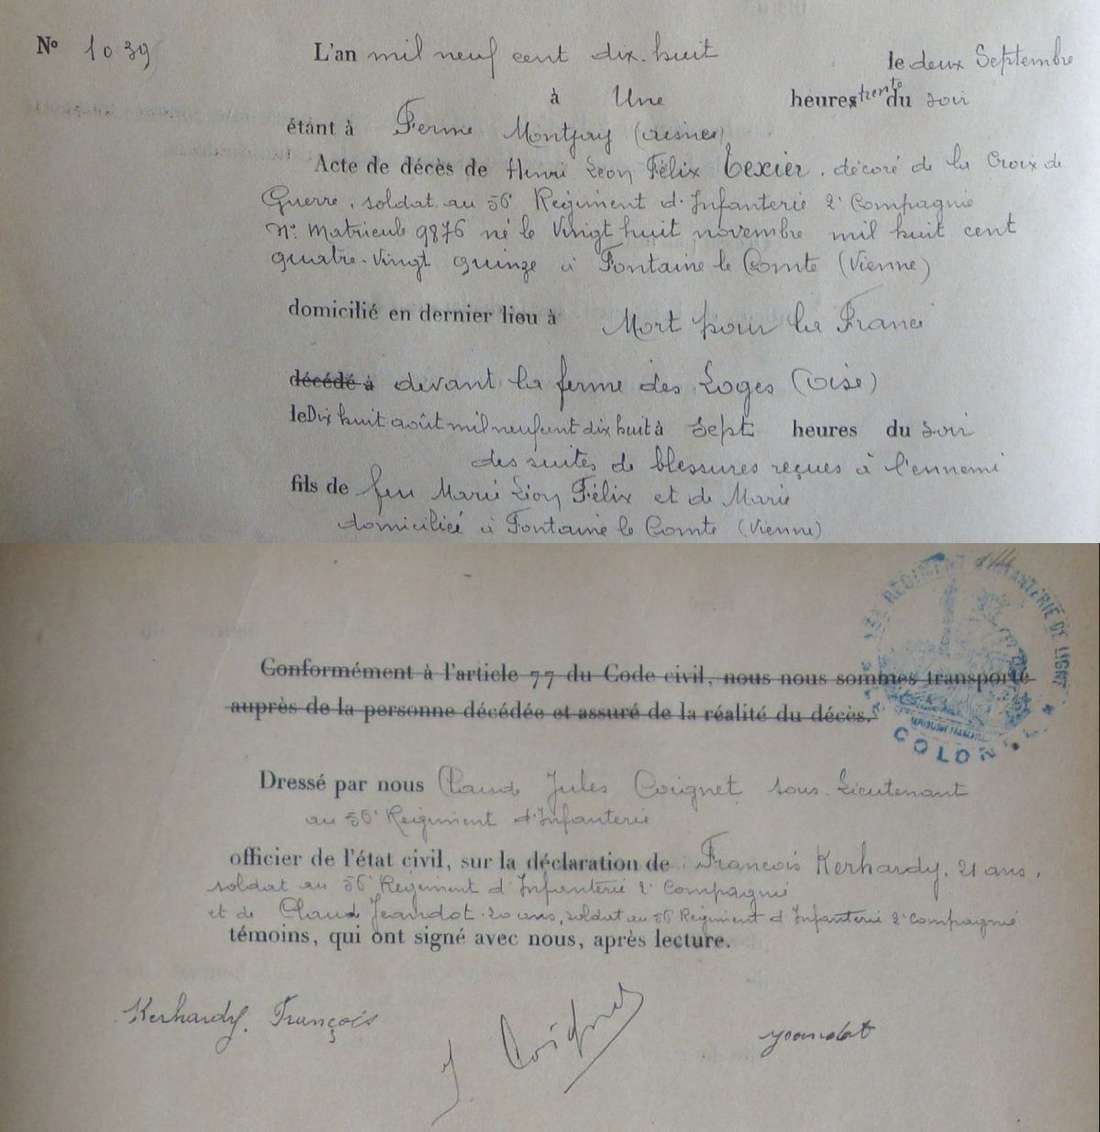 N° 1039
L'an mil neuf cent dix. huit le deux Septembre
à Une heures trente du soir
étant à Ferme Montjay (Aisne)
Acte de décès de Henri Léon Félix Texier, décoré de la Croix de
Guerre, soldat au 56e Régiment d'Infanterie 2e Compagnie
N° Matricule 9876 né le Vingt huit novembre mil huit cent
quatre-vingt quinze à Fontaine le Comte (Vienne)
domicilié en dernier lieu à Mort pour la France
décédé à devant la ferme des Loges (Oise)
le Dix huit août mil neuf cent dix huit à Sept heures du soir
des suites de blessures reçues à l'ennemi
fils de feu Marie Léon Félix et de Marie
domiciliée à Fontaine le Comte (Vienne)
RÉGIMENT D'INFANTERIE DE LIGNE
Conformément à l'article 77 du Code civil, nous nous sommes transporté
auprès de la personne décédée et assuré de la réalité du décès.
COLON
Dressé par nous Claud Jules Coignet sous. Lieutenant
au 56e Régiment d'Infanterie
officier de l'état civil, sur la déclaration de François Kerhardy, 21 ans,
soldat au 56e Régiment d'Infanterie 2e Compagnie
et de Claud Jeandot 20 ans, soldat au 56 Régiment d'Infanterie 2e Compagnie
témoins, qui ont signé avec nous, après lecture.
Kerhardy, François J Coignet jeandot